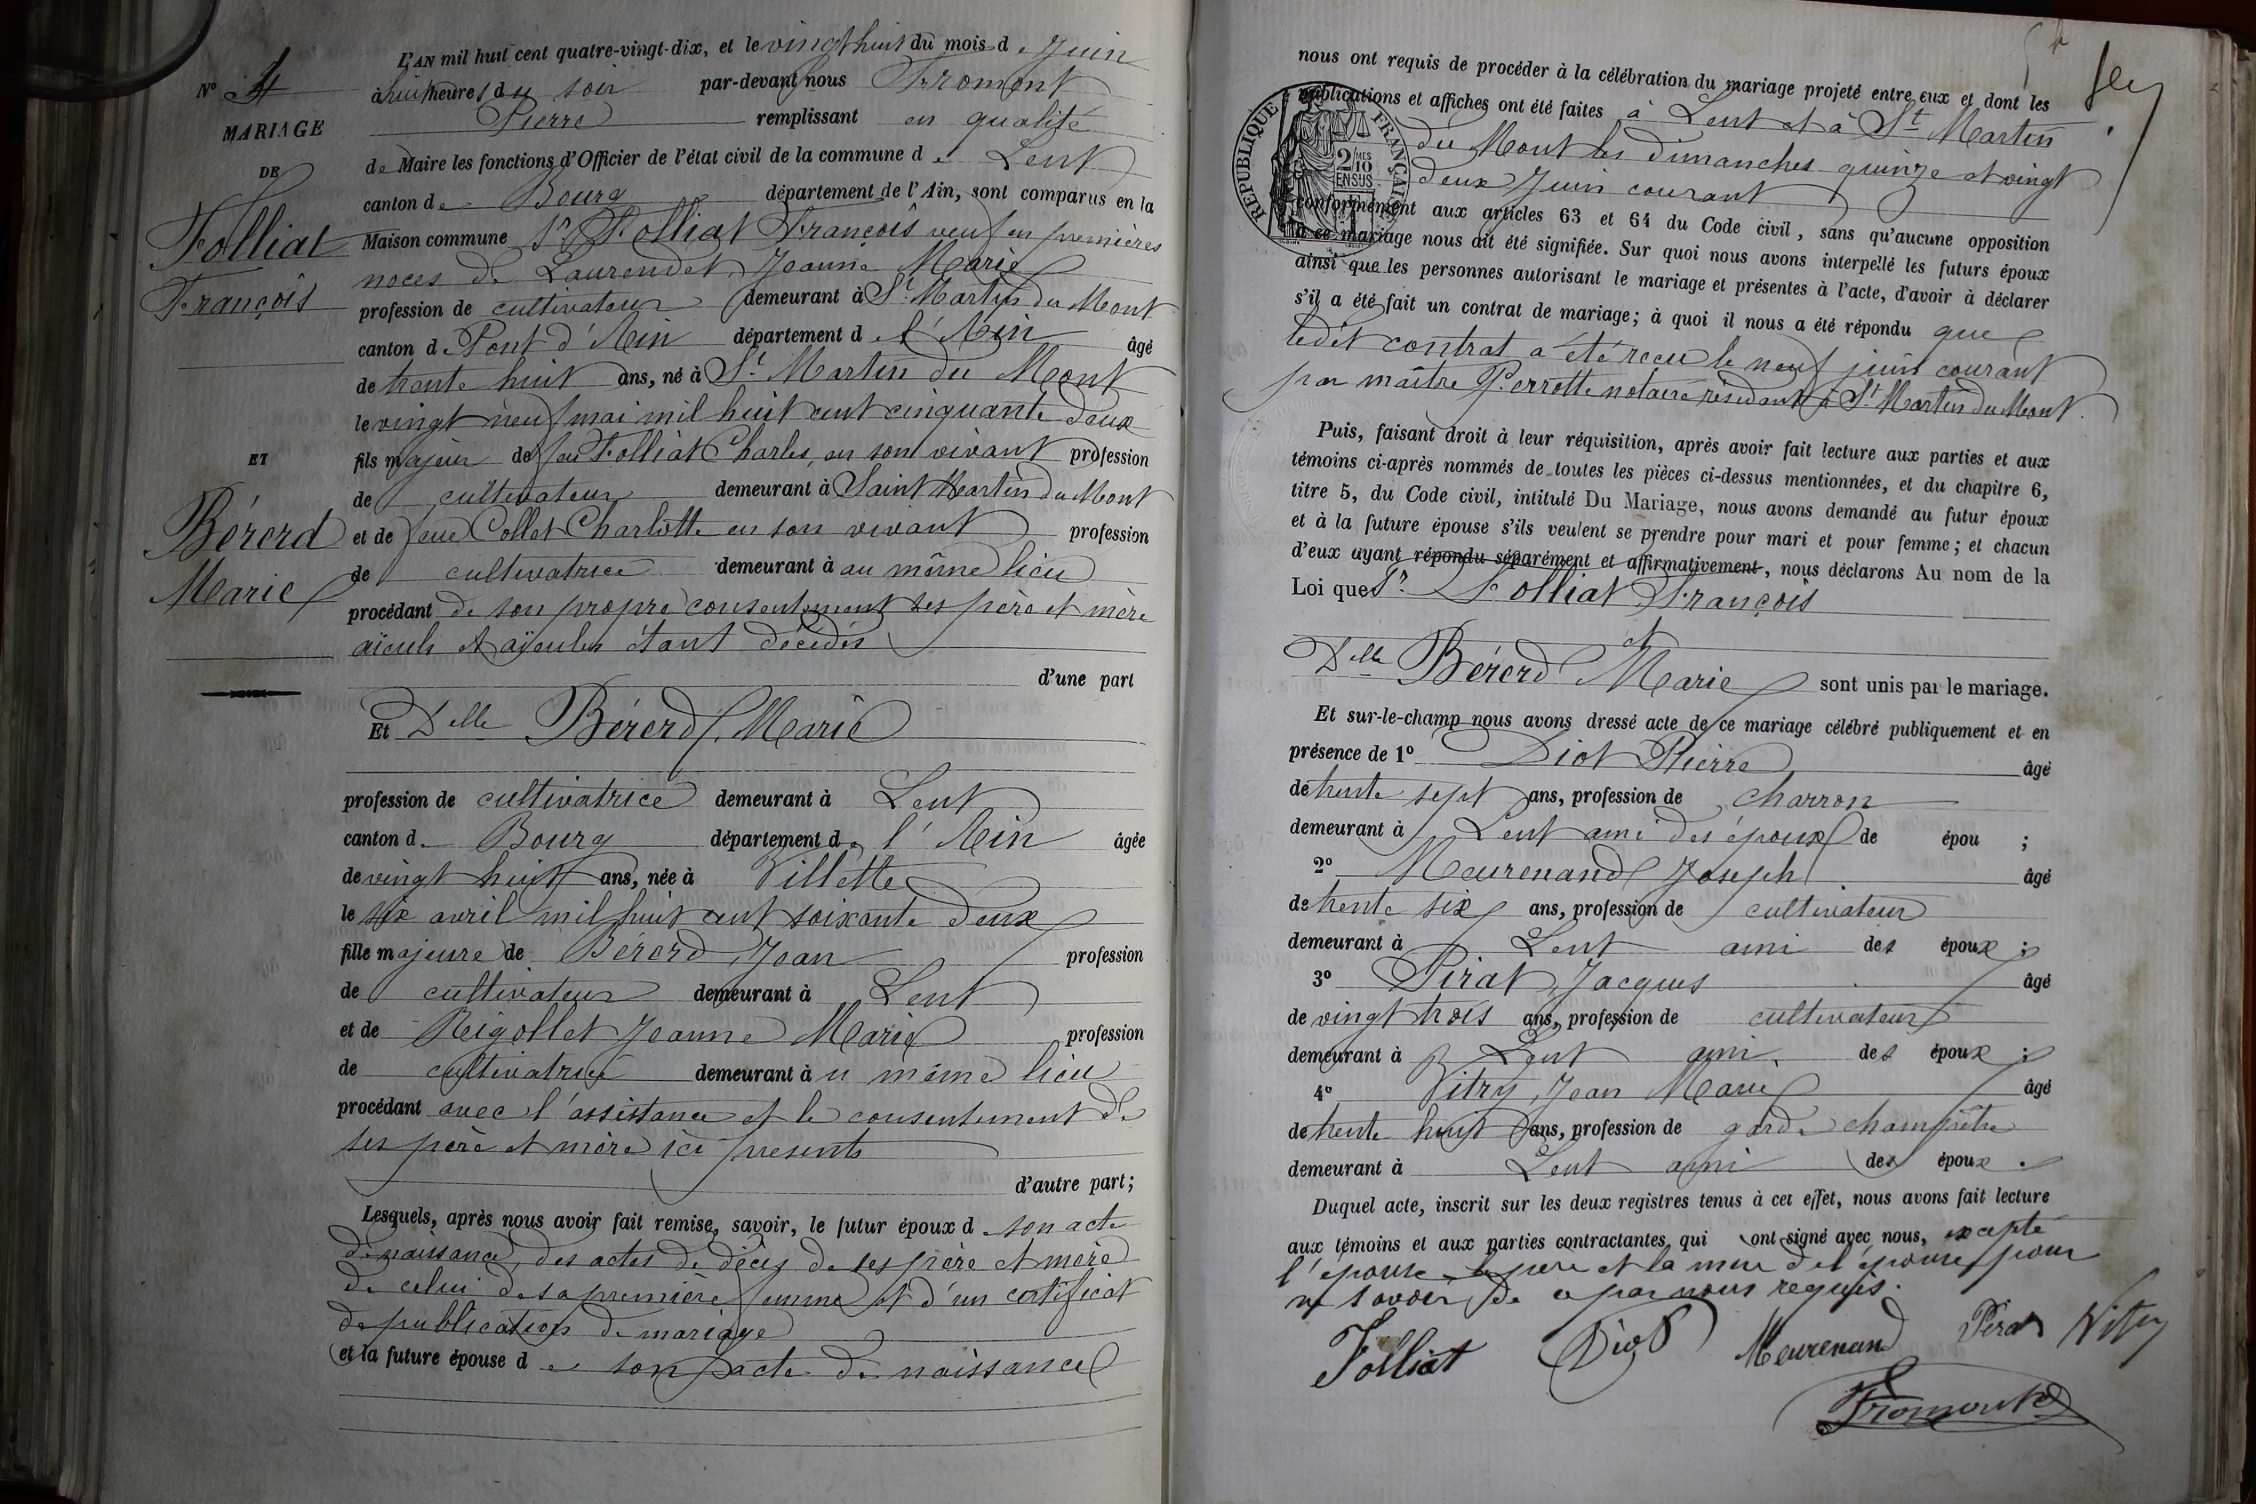 L'AN mil huit cent quatre-vingt-dix, et le vingt huit du mois de Juin
à huit heures du soir par-devant nous Fromont
Pierre remplissant en qualité
de Maire les fonctions d'Officier de l'état civil de la commune de Lent
canton de Bourg département de l'Ain, sont comparus en la
Maison commune Sr Folliat François veuf en premières
noces de Laurendet Jeanne Marie
profession de cultivateur demeurant à St Martin du Mont
canton de Pont d'Ain département de l'Ain âgé
de trente huit ans, né à St Martin du Mont
le vingt neuf mai mil huit cent cinquante deux
fils majeur de feu Folliat Charles, en son vivant profession
de cultivateur demeurant à Saint Martin du Mont
et de feue Collet Charlotte en son vivant profession
de cultivatrice demeurant à au même lieu
procédant de son propre consentement ses père et mère
aïeuls et aÿeules étant décédés
d'une part
Et Delle Bérerd Marie
profession de cultivatrice demeurant à Lent
canton de Bourg département de l'Ain âgée
de vingt huit ans, née à Villette
le six avril mil huit cent soixante deux
fille majeure de Bérerd Jean profession
de cultivateur demeurant à Lent
et de Rigollet Jeanne Marie profession
de cultivatrice demeurant à u même lieu
procédant avec l'assistance et le consentement de
ses père et mère ici présents
d'autre part;
Lesquels, après nous avoir fait remise, savoir, le futur époux de son acte
de naissance, des actes de décès de ses père et mère
de celui de sa première femme et d'un certificat
de publication de mariage
et la future épouse de son acte de naissance
No 4
MARIAGE
DE
Folliat
François
ET
Bérerd
Marie
nous ont requis de procéder à la célébration du mariage projeté entre eux et dont les
publications et affiches ont été faites à Lent et à St Martin
du Mont les dimanches quinze et vingt
deux Juin courant
conformément aux articles 63 et 64 du Code civil, sans qu'aucune opposition
à ce mariage nous ait été signifiée. Sur quoi nous avons interpellé les futurs époux
ainsi que les personnes autorisant le mariage et présentes à l'acte, d'avoir à déclarer
s'il a été fait un contrat de mariage; à quoi il nous a été répondu que
ledit contrat a été reçu le neuf juin courant
par maître Perrotte notaire résidant à St Martin du Mont.
RÉPUBLIQUE FRANÇAISE
2/10MES
EN SUS
Puis, faisant droit à leur réquisition, après avoir fait lecture aux parties et aux
témoins ci-après nommés de toutes les pièces ci-dessus mentionnées, et du chapitre 6,
titre 5, du Code civil, intitulé Du Mariage, nous avons demandé au futur époux
et à la future épouse s'ils veulent se prendre pour mari et pour femme; et chacun
d'eux ayant répondu séparément et affirmativement, nous déclarons Au nom de la
Loi que Sr Folliat François
et
Delle Bérerd Marie sont unis par le mariage.
Et sur-le-champ nous avons dressé acte de ce mariage célébré publiquement et en
présence de 1o Diot Pierre âgé
de trente sept ans, profession de charron
demeurant à Lent ami des époux de épou ;
2o Meurenand Joseph âgé
de trente six ans, profession de cultivateur
demeurant à Lent ami des époux ;
3o Pirat Jacques âgé
de vingt trois ans, profession de cultivateur
demeurant à Lent ami des époux ;
4o Vitry Jean Marie âgé
de trente huit ans, profession de garde champêtre
demeurant à Lent ami des époux .
Duquel acte, inscrit sur les deux registres tenus à cet effet, nous avons fait lecture
aux témoins et aux parties contractantes, qui ont signé avec nous, excepté
l'épouse, le père et la mère de l'épouse, pour
ne savoir, de ce par nous requis.
Folliat Diot Meurenand Pirat Vitry
Fromont